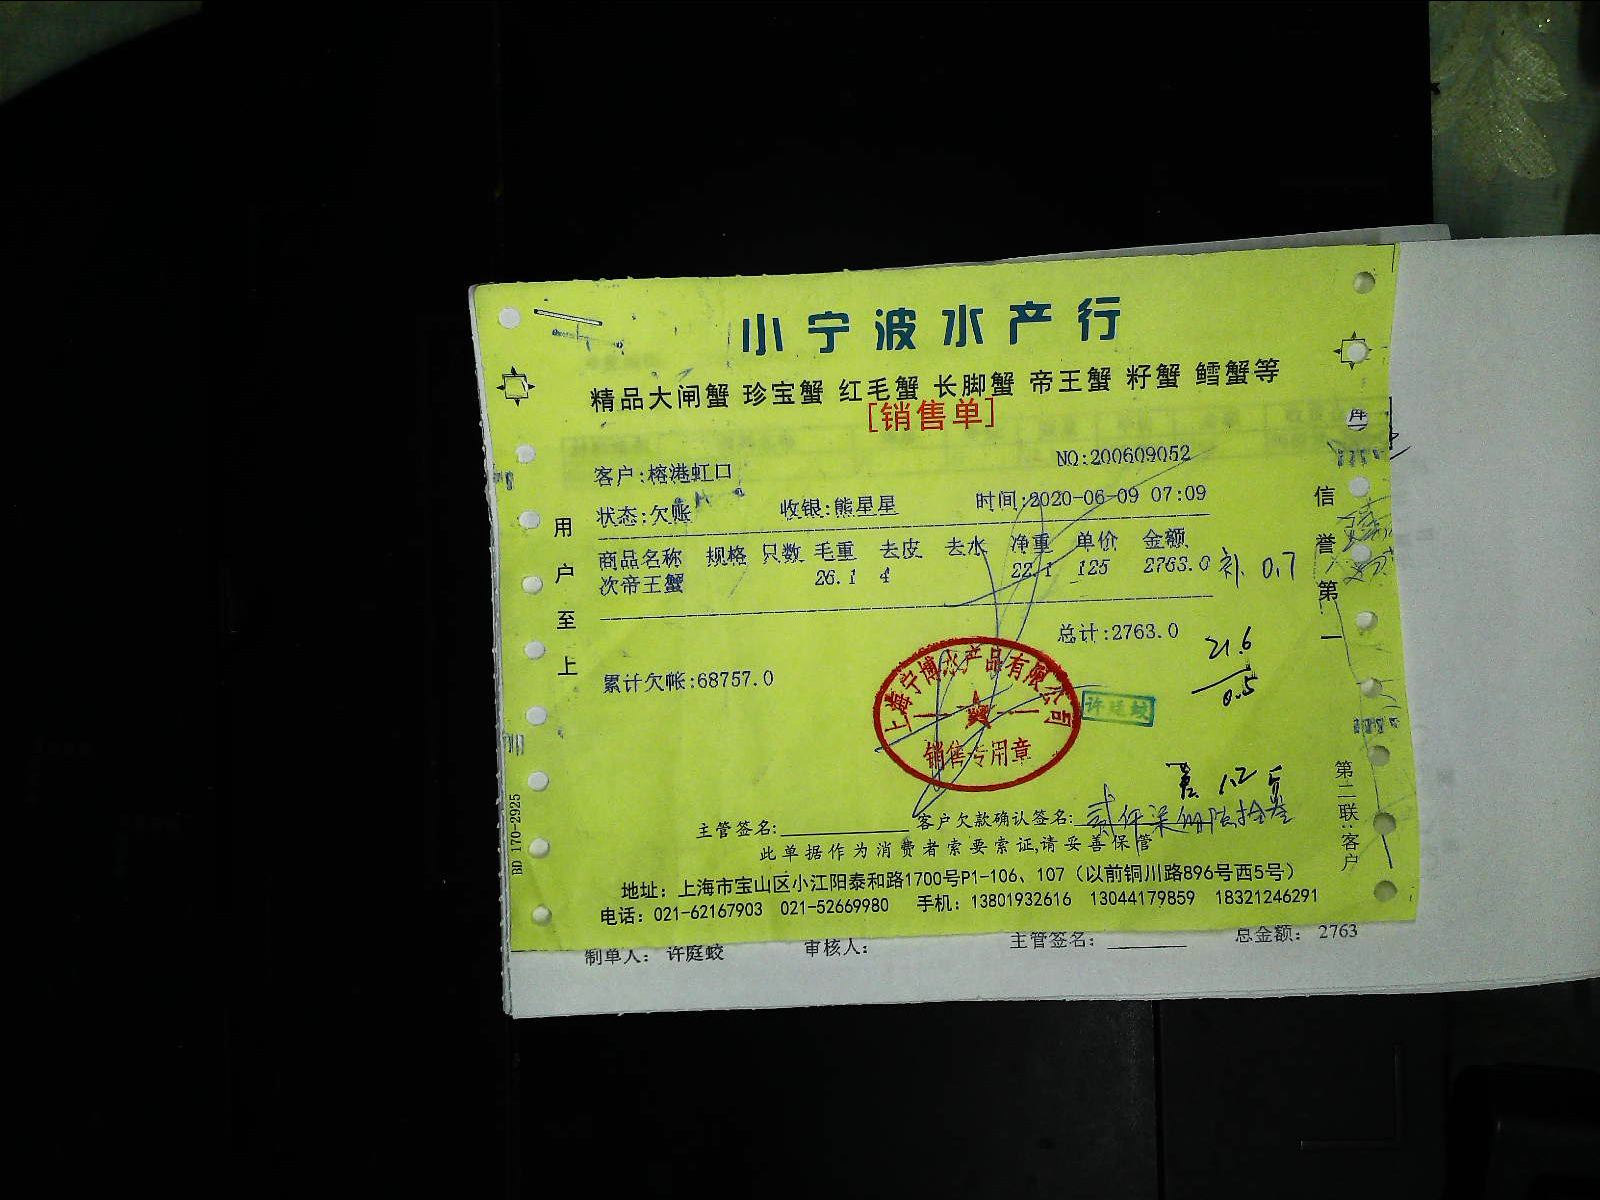 小宁波水产行
精品大闸蟹 珍宝蟹 红毛蟹 长脚蟹 帝王蟹 籽蟹 鳕蟹等
[销售单]
NO:200609052
客户:榕港虹口
状态:欠账 收银:熊星星 时间:2020-06-09 07:09
商品名称 规格 只数 毛重 去皮 去水 净重 单价 金额
次帝王蟹 26.1 4 22.1 125 2763.0 补 0.7
总计:2763.0
21.6
0.5
累计欠帐:68757.0
上海宁博水产品有限公司
销售专用章
许廷蛟
1.2
主管签名: 客户欠款确认签名: 贰仟柒佰陆拾叁
此单据作为消费者索要索证,请妥善保管
地址：上海市宝山区小江阳泰和路1700号P1-106、107（以前铜川路896号西5号）
电话：021-62167903 021-52669980 手机：13801932616 13044179859 18321246291
用户至上
信誉第一
第二联:客户
BD 170-2925
制单人： 许庭蛟 审核人： 主管签名： 总金额： 2763